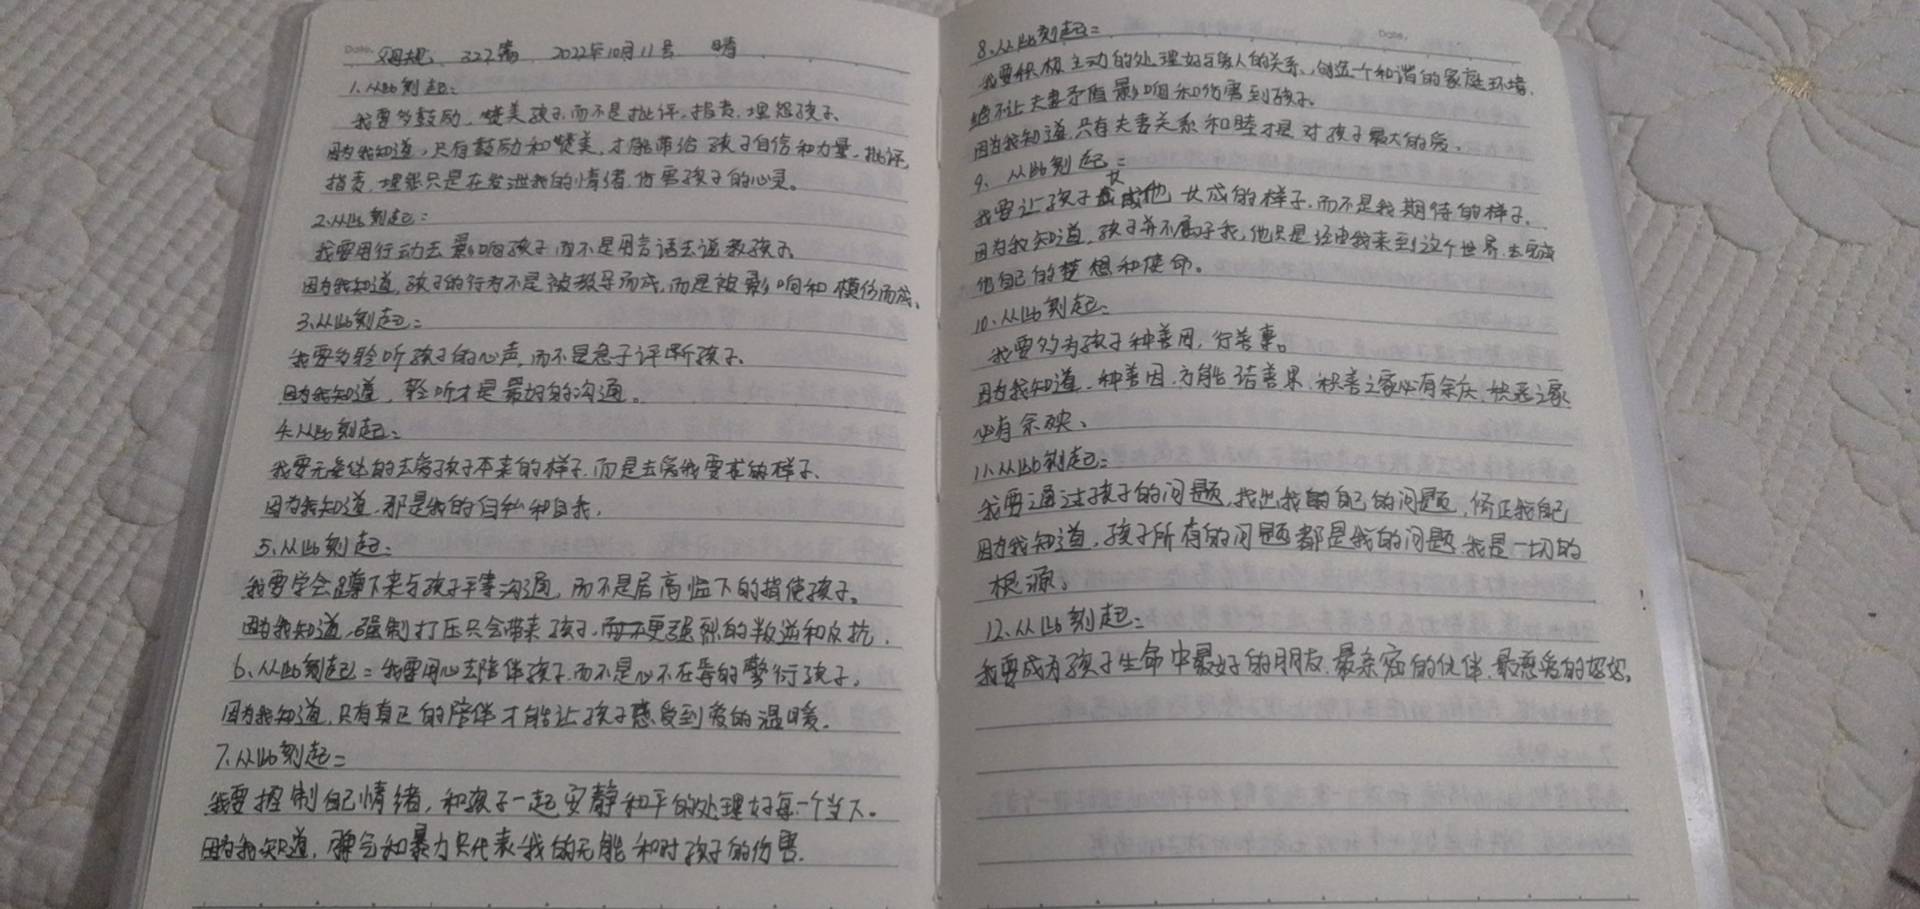 Date. 父母规 322遍 2022年10月11号 晴
1.从此刻起:
我要多鼓励,赞美孩子,而不是批评,指责,埋怨孩子、
因为我知道,只有鼓励和赞美,才能带给孩子自信和力量,批评,
指责,埋怨只是在发泄我的情绪,伤害孩子的心灵。
2.从此刻起:
我要用行动去影响孩子而不是用言语去说教孩子、
因为我知道,孩子的行为不是被教导而成,而是被影响和模仿而成、
3.从此刻起:
我要多聆听孩子的心声,而不是急于评断孩子、
因为我知道,聆听才是最好的沟通。
4.从此刻起:
我要无条件的去爱孩子本来的样子,而是去爱我要求的样子、
因为我知道,那是我的自私和自我,
5.从此刻起:
我要学会蹲下来与孩子平等沟通,而不是居高临下的指使孩子。
因为我知道,强制打压只会带来孩子,而不更强烈的叛逆和反抗.
6、从此刻起:我要用心去陪伴孩子,而不是心不在焉的敷衍孩子,
因为我知道,只有真正的陪伴才能让孩子感受到爱的温暖.
7、从此刻起:
我要控制自己情绪,和孩子一起安静和平的处理好每一个当下。
因为我知道,脾气和暴力只代表我的无能和对孩子的伤害.
Date.
8、从此刻起:
我要积极主动的处理好与家人的关系,创造一个和谐的家庭环境,
绝不让夫妻矛盾影响和伤害到孩子。
因为我知道,只有夫妻关系和睦才是对孩子最大的爱。
9、从此刻起:
我要让孩子成他长成的样子,而不是我期待的样子、
因为我知道,孩子并不属于我,他只是经由我来到这个世界,去完成
他自己的梦想和使命。
10、从此刻起:
我要多为孩子种善因,行善事。
因为我知道,种善因,方能结善果,积善之家必有余庆,积恶之家
必有余殃、
11、从此刻起:
我要通过孩子的问题,找出我的自己的问题,修正我自己
因为我知道,孩子所有的问题都是我的问题,我是一切的
根源。
12、从此刻起:
我要成为孩子生命中最好的朋友,最亲密的伙伴,最慈爱的妈妈,